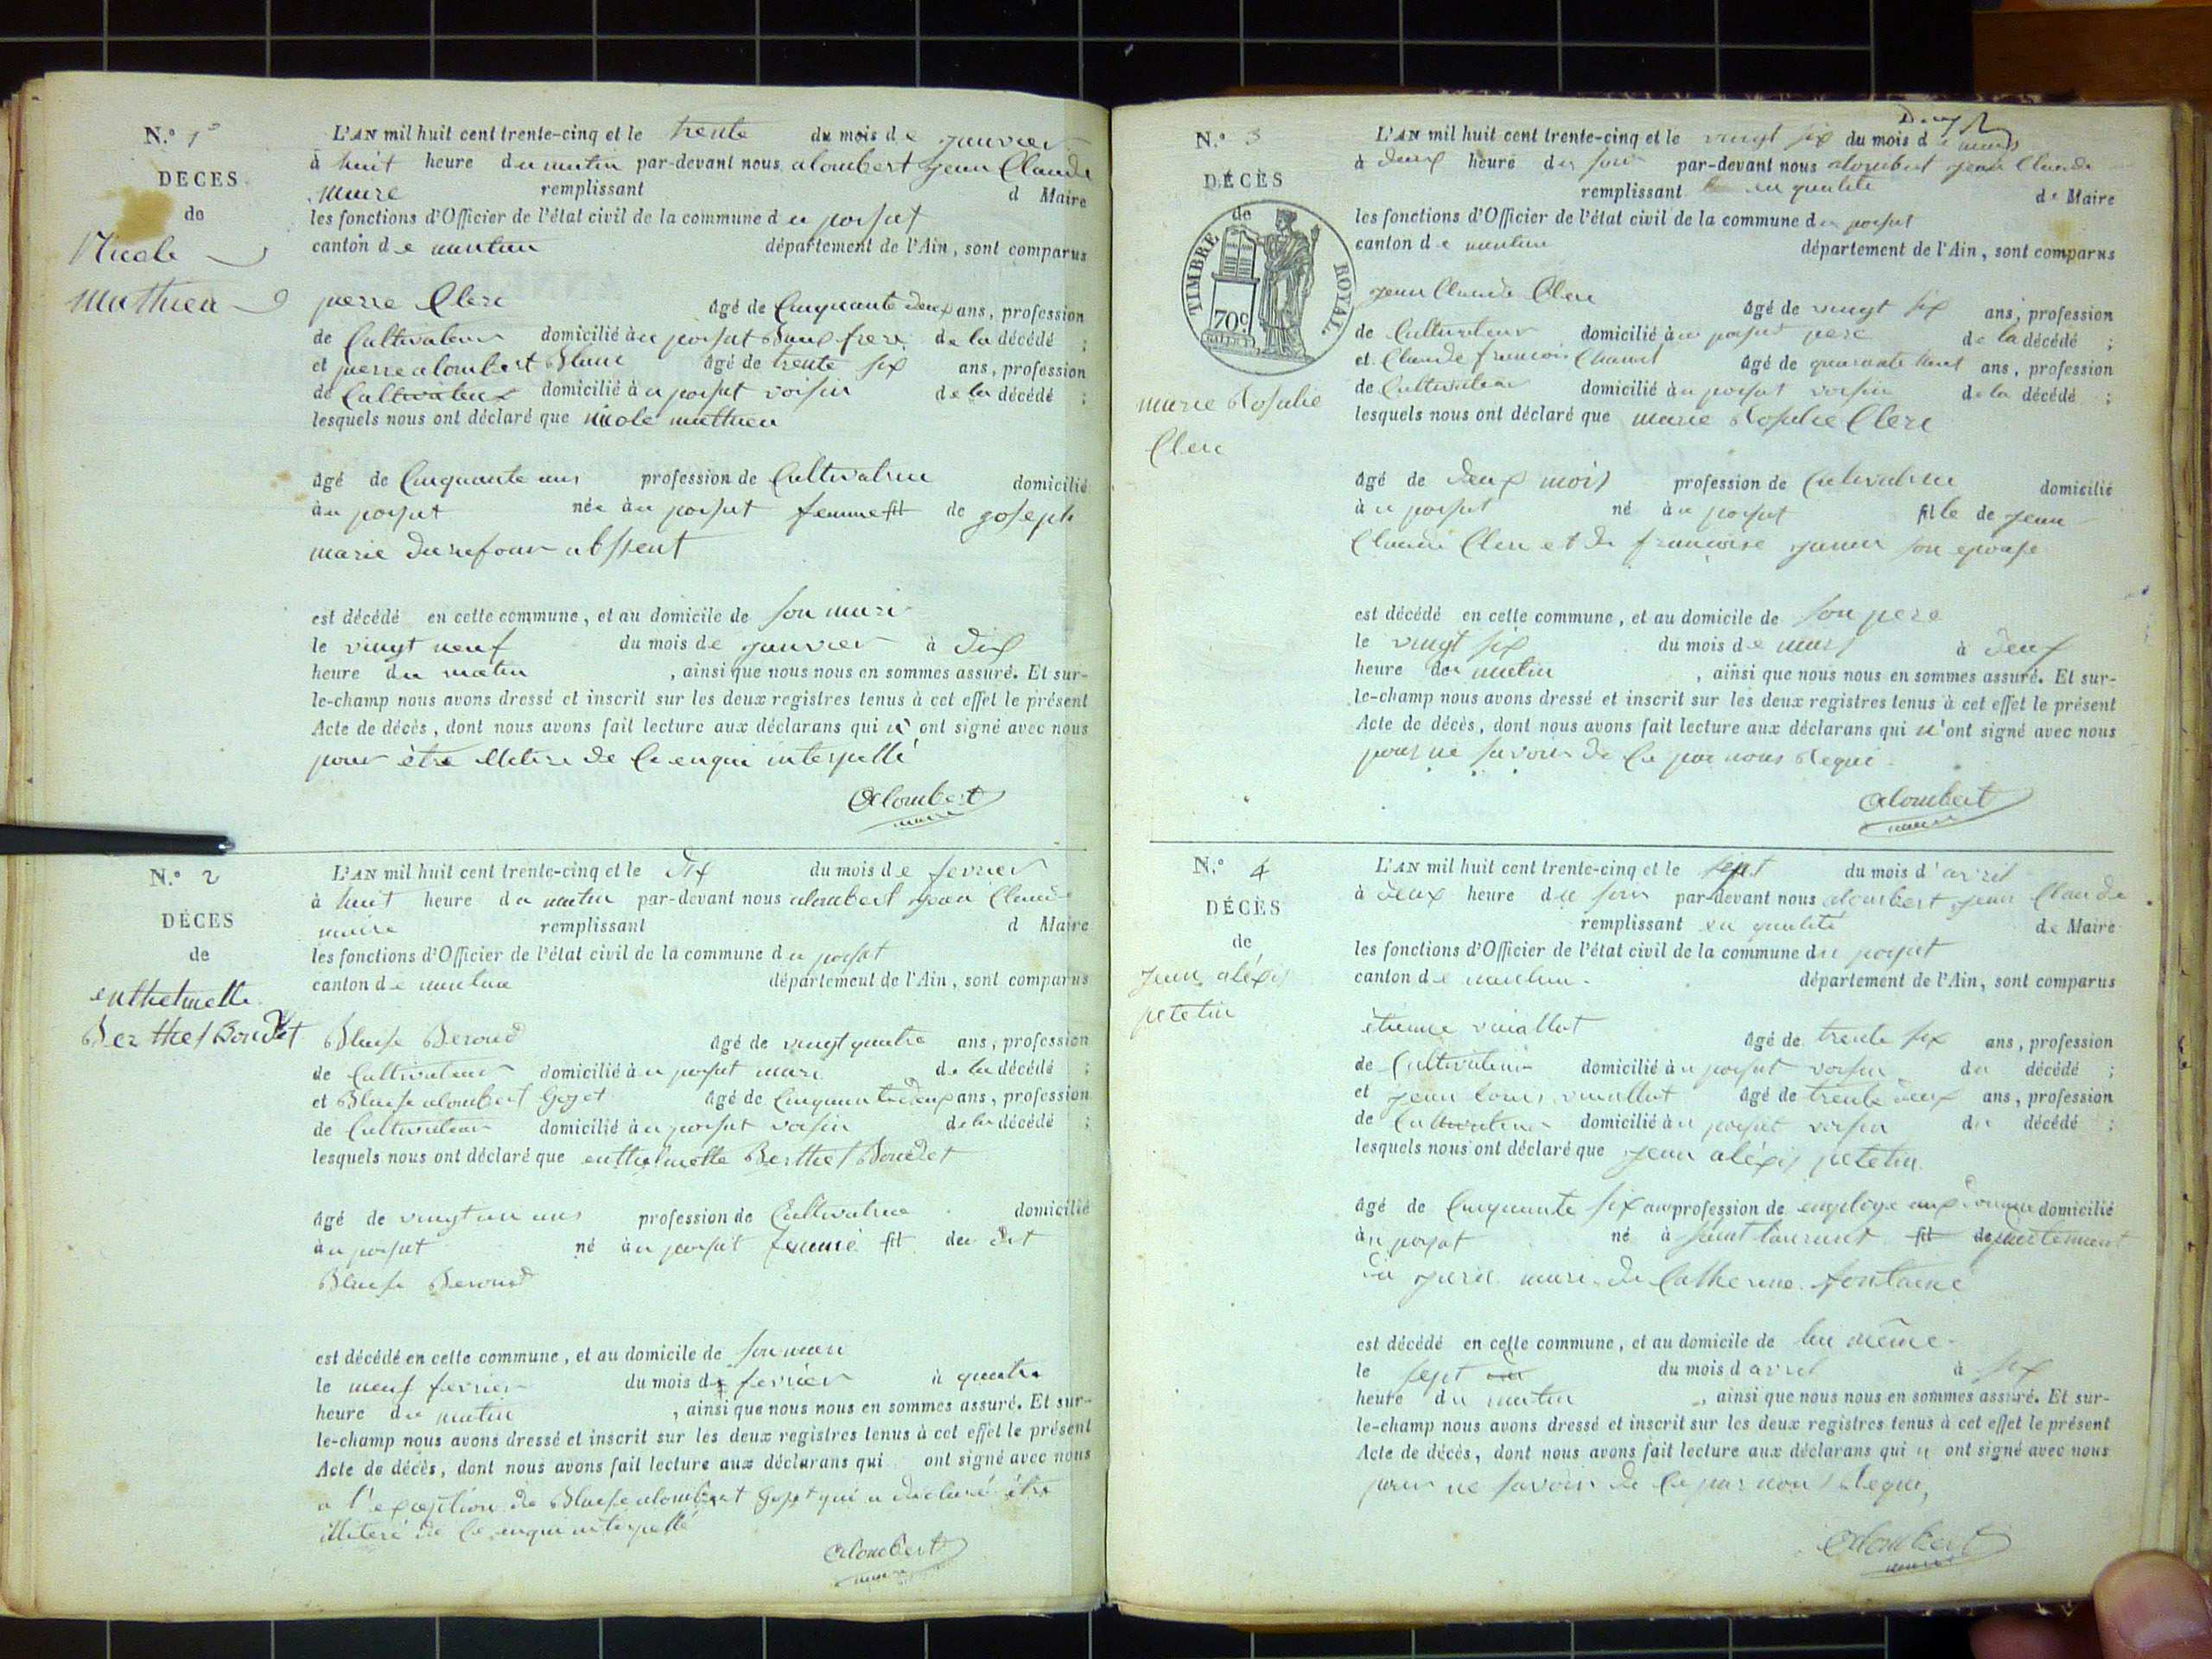 N.o 1
DÉCES
de
Nicole
Mathieu
L'AN mil huit cent trente-cinq et le trente du mois de janvier
à huit heure du matin par-devant nous alombert jean Claude
maire remplissant d Maire
les fonctions d'Officier de l'état civil de la commune du poisat
canton de nantua département de l'Ain, sont comparus
pierre Clerc âgé de Cinquante deux ans, profession
de Cultivateur domicilié au poisat Beaux frere de la décédé ;
et pierre alombert Blanc âgé de trente six ans, profession
de Cultivateur domicilié au poisat voisin de la décédé ;
lesquels nous ont déclaré que nicole mathieu
âgé de Cinquante ans profession de Cultivatrice domicilié
au poisat née au poisat femme fil de joseph
marie durafour absent
est décédé en cette commune, et au domicile de son mari
le vingt neuf du mois de janvier à dix
heure du matin , ainsi que nous nous en sommes assuré. Et sur-
le-champ nous avons dressé et inscrit sur les deux registres tenus à cet effet le présent
Acte de décès, dont nous avons fait lecture aux déclarans qui n' ont signé avec nous
pour être illitéré de Ce enqui interpellé
alombert
maire
N.o 2
DÉCES
de
enthelmette
Berthet Bondet
L'AN mil huit cent trente-cinq et le dix du mois de fevrier
à huit heure du matin par-devant nous alombert jean Claude
maire remplissant d Maire
les fonctions d'Officier de l'état civil de la commune du poisat
canton de nantua département de l'Ain, sont comparus
Blaise Beroud âgé de vingt quatre ans, profession
de Cultivateur domicilié au poisat mari de la décédé ;
et Blaise alombert Goget âgé de Cinquante deux ans, profession
de Cultivateur domicilié au poisat voisin de la décédé ;
lesquels nous ont déclaré que enthelmette Berthet Bondet
âgé de vingt un ans profession de Cultivatrice domicilié
au poisat né au poisat femme fil du dit
Blaise Beroud
est décédé en cette commune, et au domicile de son mari
le neuf fevrier du mois de fevrier à quatre
heure du matin , ainsi que nous nous en sommes assuré. Et sur-
le-champ nous avons dressé et inscrit sur les deux registres tenus à cet effet le présent
Acte de décès, dont nous avons fait lecture aux déclarans qui ont signé avec nous
a l'exception de Blaise alombert Goget qui a declaré être
illiteré de Ce enqui interpellé
alombert
maire
N.o 3
DÉCÈS
de
TIMBRE ROYAL
70c
marie Rosalie
Clerc
L'AN mil huit cent trente-cinq et le vingt six du mois de mars
à deux heure du soir par-devant nous alombert jean Claude
remplissant en qualité de Maire
les fonctions d'Officier de l'état civil de la commune du poisat
canton de nantua département de l'Ain, sont comparus
jean Claude Clerc âgé de vingt six ans, profession
de Cultivateur domicilié au poisat pere de la décédé ;
et Claude francois âgé de quarante huit ans, profession
de Cultivateur domicilié au poisat voisin de la décédé ;
lesquels nous ont déclaré que marie Rosalie Clerc
âgé de deux mois profession de Cultivatrice domicilié
au poisat né au poisat fille de jean
Claude Clerc et de francoise son epouse
est décédé en cette commune, et au domicile de son pere
le vingt six du mois de mars à deux
heure du matin , ainsi que nous nous en sommes assuré. Et sur-
le-champ nous avons dressé et inscrit sur les deux registres tenus à cet effet le présent
Acte de décès, dont nous avons fait lecture aux déclarans qui n'ont signé avec nous
pour ne savoir de Ce par nous Requi
alombert
maire
N.o 4
DÉCÈS
de
jean aléxis
petetin
L'AN mil huit cent trente-cinq et le sept du mois d'avril
à deux heure du soir par-devant nous alombert jean Claude
remplissant en qualité de Maire
les fonctions d'Officier de l'état civil de la commune du poisat
canton de nantua département de l'Ain, sont comparus
étienne vuaillat âgé de trente six ans, profession
de Cultivateur domicilié au poisat voisin du décédé ;
et jean louis vuaillat âgé de trente deux ans, profession
de Cultivateur domicilié au poisat voisin du décédé ;
lesquels nous ont déclaré que jean aléxis petetin
âgé de Cinquante six ans profession de employé aux domicilié
au poisat né à saint laurent fil departement
du jura mari de Catherine fontaine
est décédé en cette commune, et au domicile de lui même
le sept du mois d avril à six
heure du matin , ainsi que nous nous en sommes assuré. Et sur-
le-champ nous avons dressé et inscrit sur les deux registres tenus à cet effet le présent
Acte de décès, dont nous avons fait lecture aux déclarans qui n ont signé avec nous
pour ne savoir de Ce par nous Requi,
alombert
maire